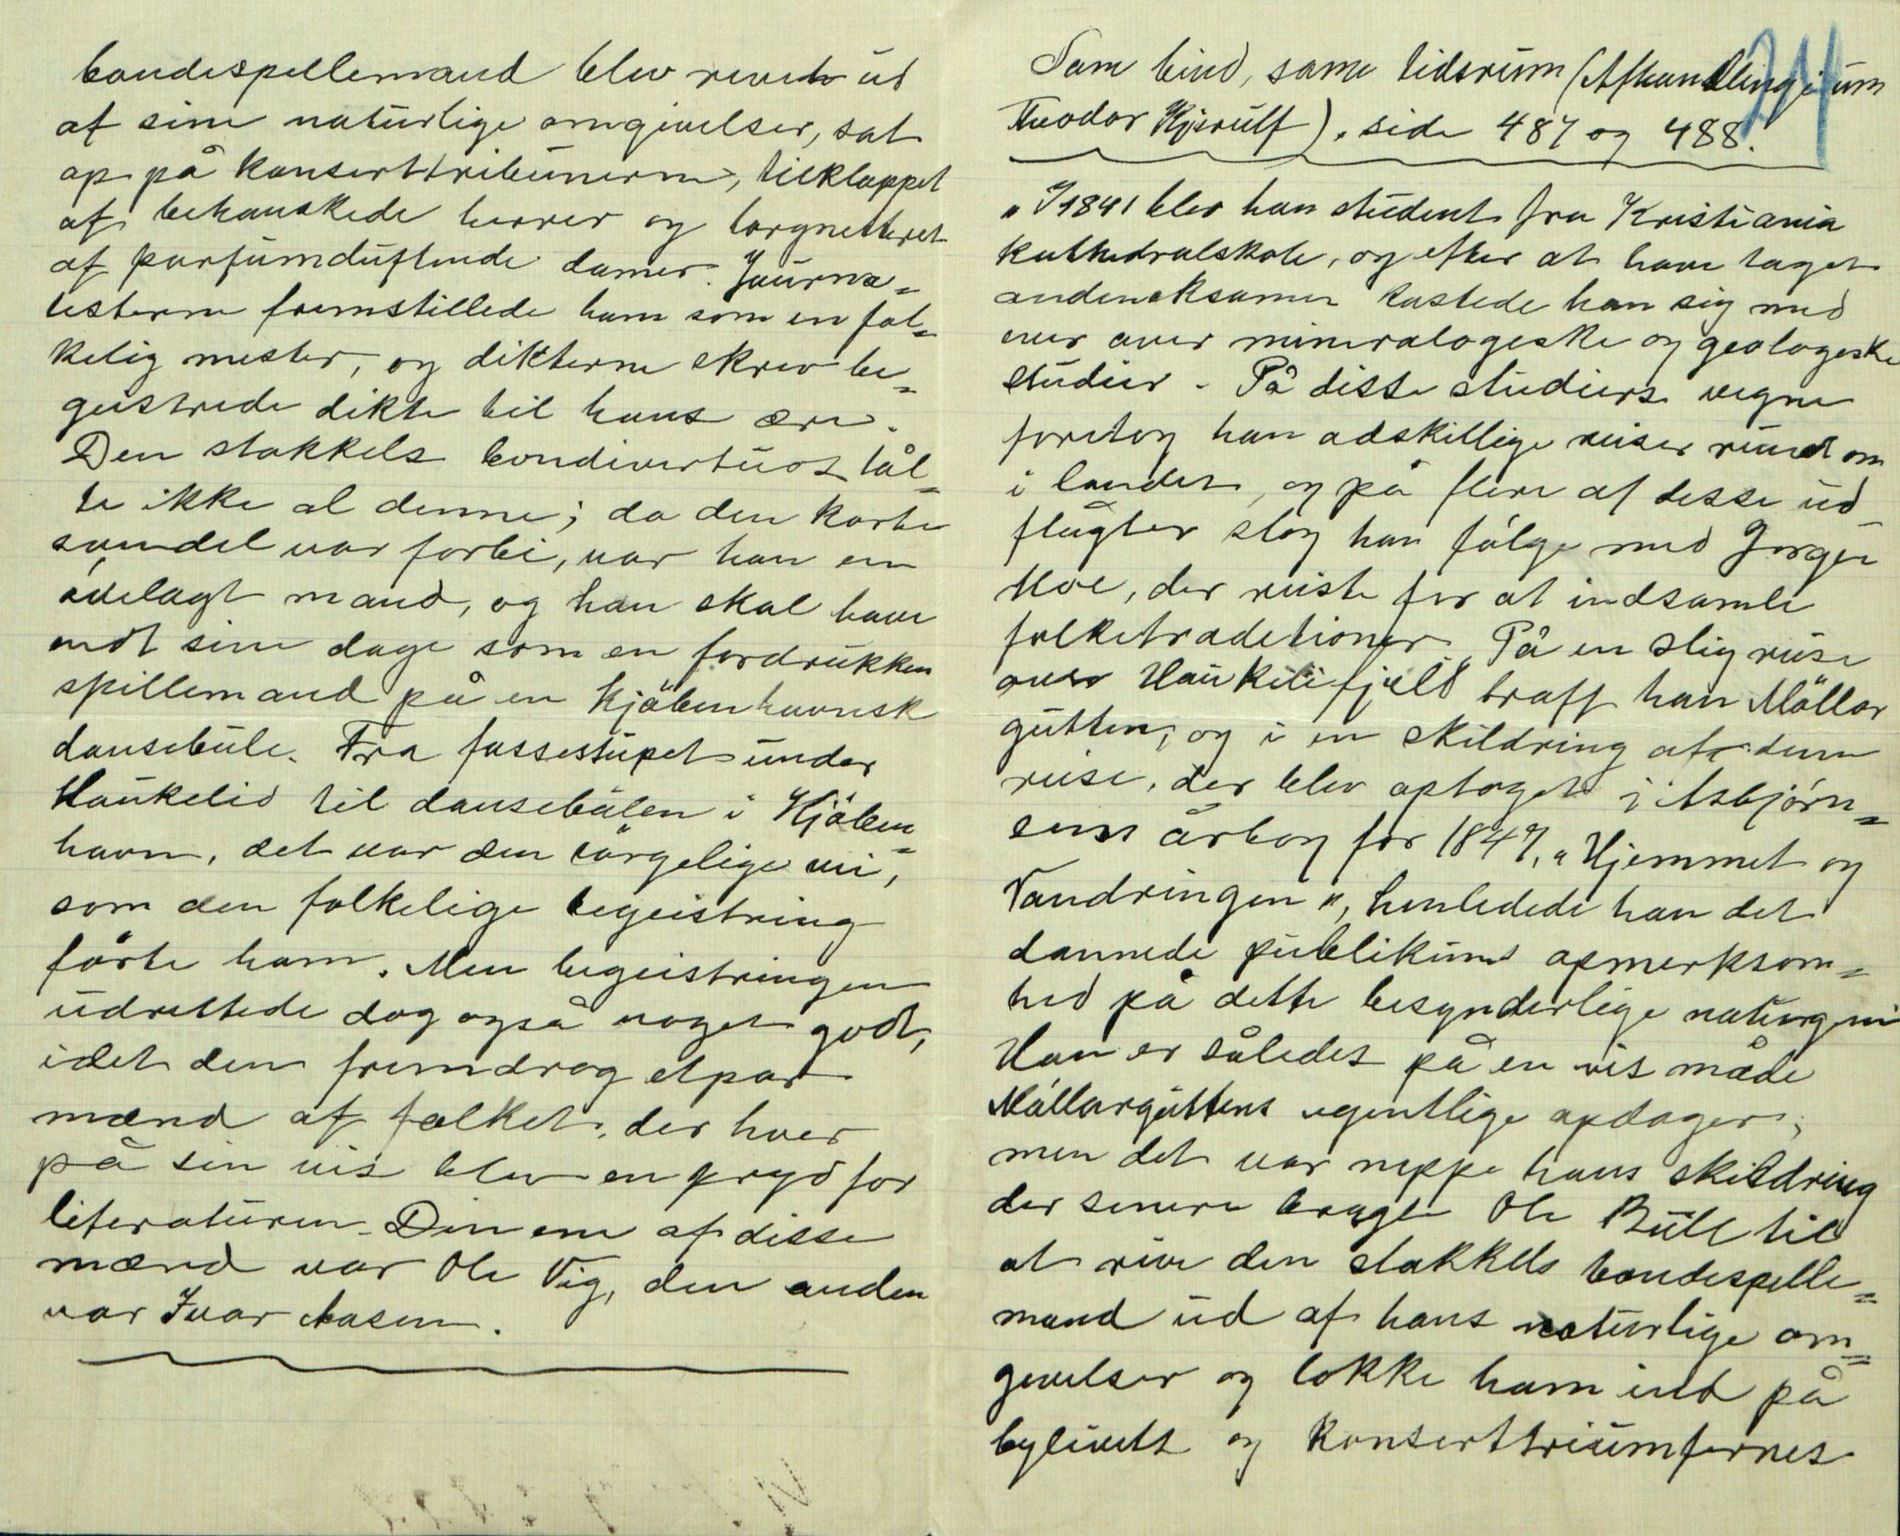 bondespellemand blev revet ud
af sine naturlige omgivelser, sat
op på konserttribunerne, tilklappet
af behanskede herrer og lorgnetteret
af parfumduftende damer. Journa=
listerne fremstillede ham som en fol=
kelig mester, og dikterne skrev be=
geistrede dikte til hans ære.
Den stakkels bondevirtuos tål=
te ikke al denne; da den korte
svindel var forbi, var han en
ødelagt mand, og han skal have
endt sine dage som en fordrukken
spillemand på en kjøbenhavnsk
dansebule. Fra fossestupet under
Haukelid til dansebulen i Kjøben=
havn, det var den sørgelige vei,
som den folkelige begeistring
førte ham. Men begeistringen
udrettede dog også noget godt,
idet den fremdrog etpar
mænd af folket, der hver
på sin vis blev en pryd for
literaturen. Den ene af disse
mænd var Ole Vig, den anden
var Ivar Aasen.
24
Sam bind, same tidsrum (Afhandling om
Theodor Kjerulf), side 487 og 488.
„I 1841 blev han student fra Kristiania
kathedralskole, og efter at have taget
andeneksamen kastede han sig med
iver over mineralogeske og geologeske
studier. På disse studiers vegne
foretog han adskillige reiser rundt om
i landet, og på flere af disse ud
flugter slog han følge med Jørgen
Moe, der reiste for at indsamle
folketraditioner. På en slig reise
over Haukelifjeld traff han Møllar
gutten, og i en skildring af denne
reise, der blev optaget i Asbjørn=
sens årbog for 1847, „Hjemmet og
Vandringen", henledede han det
dannede publikums opmerksom=
hed på dette besynderlige naturgeni
Han er således på en vis måde
Møllarguttens egentlige opdager;
men det var neppe hans skildring
der senere bragte Ole Bull til
at rive den stakkels bondespelle=
mand ud af hans naturlige om=
givelser og lokke ham ind på
bylivets og konserttriumfernes